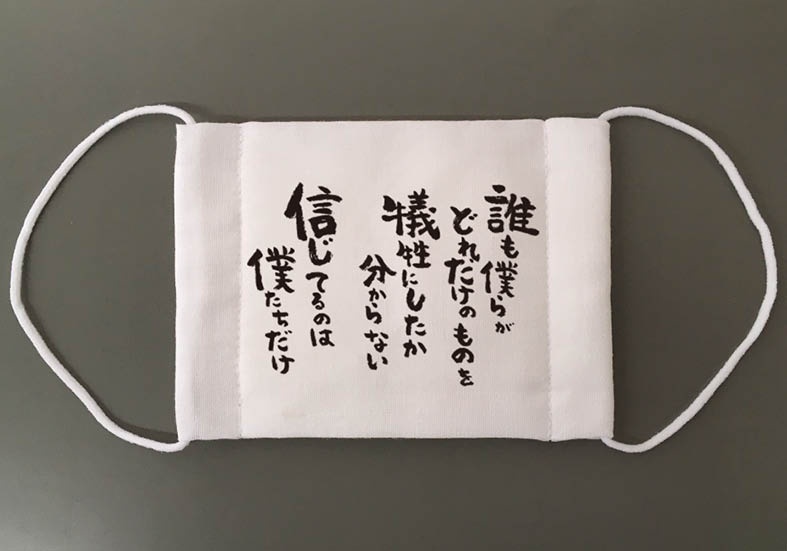 誰も僕らが
どれだけのものを
犠牲にしたか
分からない
信じてるのは
僕たちだけ